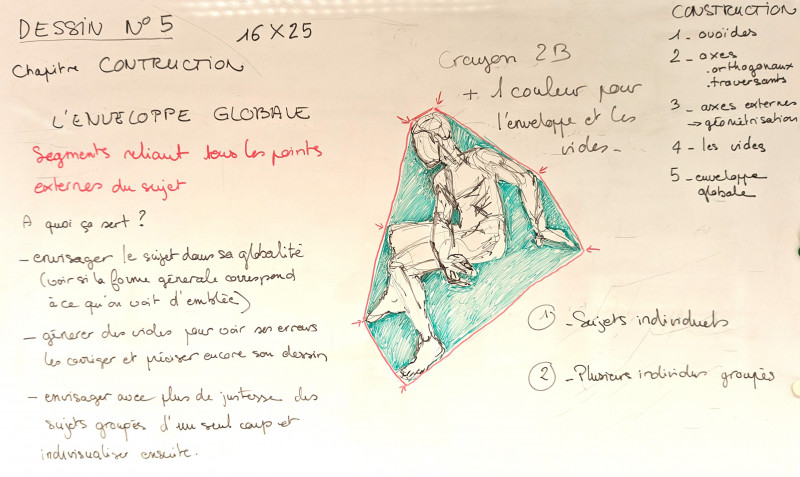 DESSIN N° 5
16 x 25
Chapitre CONTRUCTION
L'ENVELOPPE GLOBALE
Segments reliant tous les points
externes du sujet
A quoi ça sert ?
- envisager le sujet dans sa globalité
(voir si la forme générale correspond
à ce qu'on voit d'emblée)
- générer des vides pour voir ses erreurs
les corriger et préciser encore son dessin
- envisager avec plus de justesse des
sujets groupés d'un seul coup et
indivisualiser ensuite.
Crayon 2B
+ 1 couleur pour
l'enveloppe et les
vides -
CONSTRUCTION
1 - ovoïdes
2 - axes
. orthogonaux
. traversants
3 - axes externes
→ géométrisation
4 - les vides
5 - enveloppe
globale
1 - Sujets individuels
2 - Plusieurs individus groupés